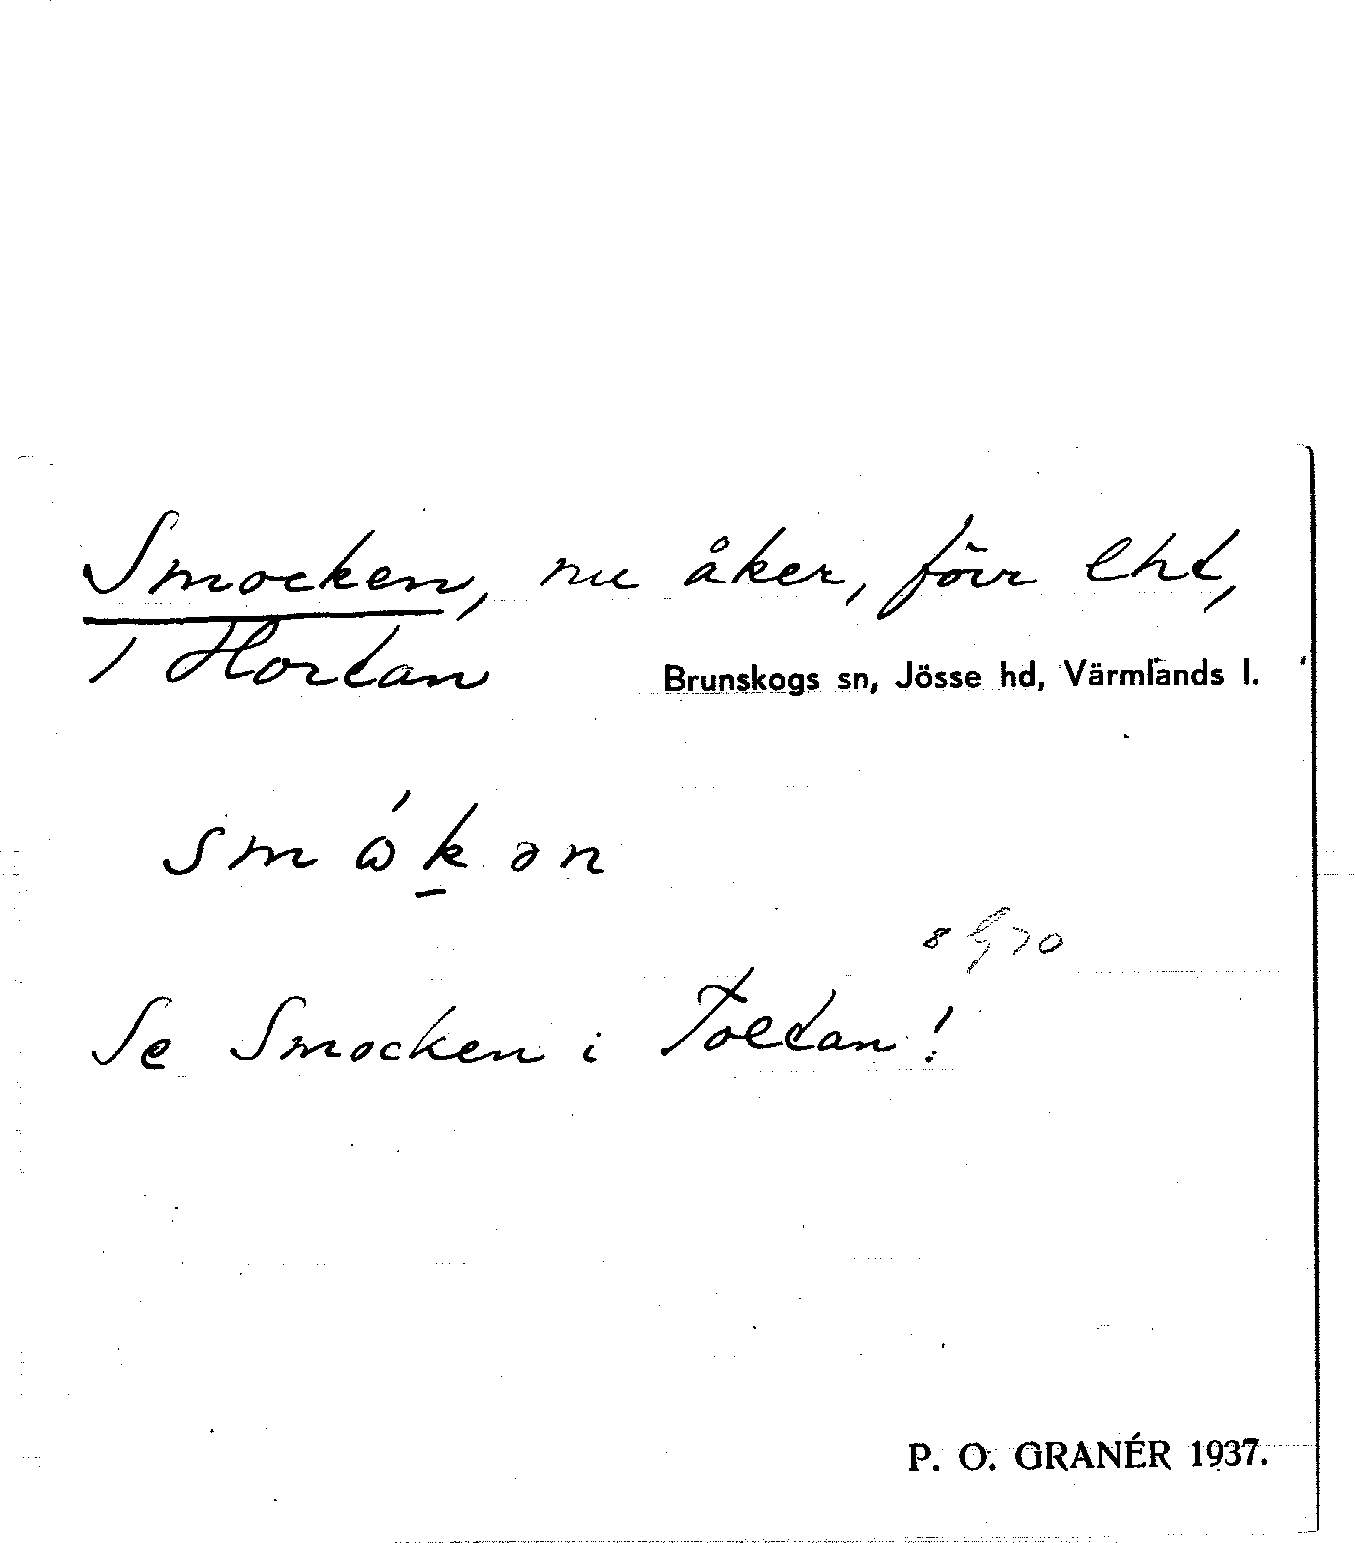 Smocken, nu åker, förr lht,
i Hortan Brunskogs sn, Jösse hd, Värmlands l.
smɷ́k̲ən
Se Smocken i Toltan!
P. O. GRANÉR 1937.